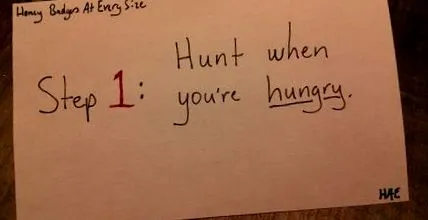 Honey Badgers At Every Size
Step 1: Hunt when
you're hungry.
HAE